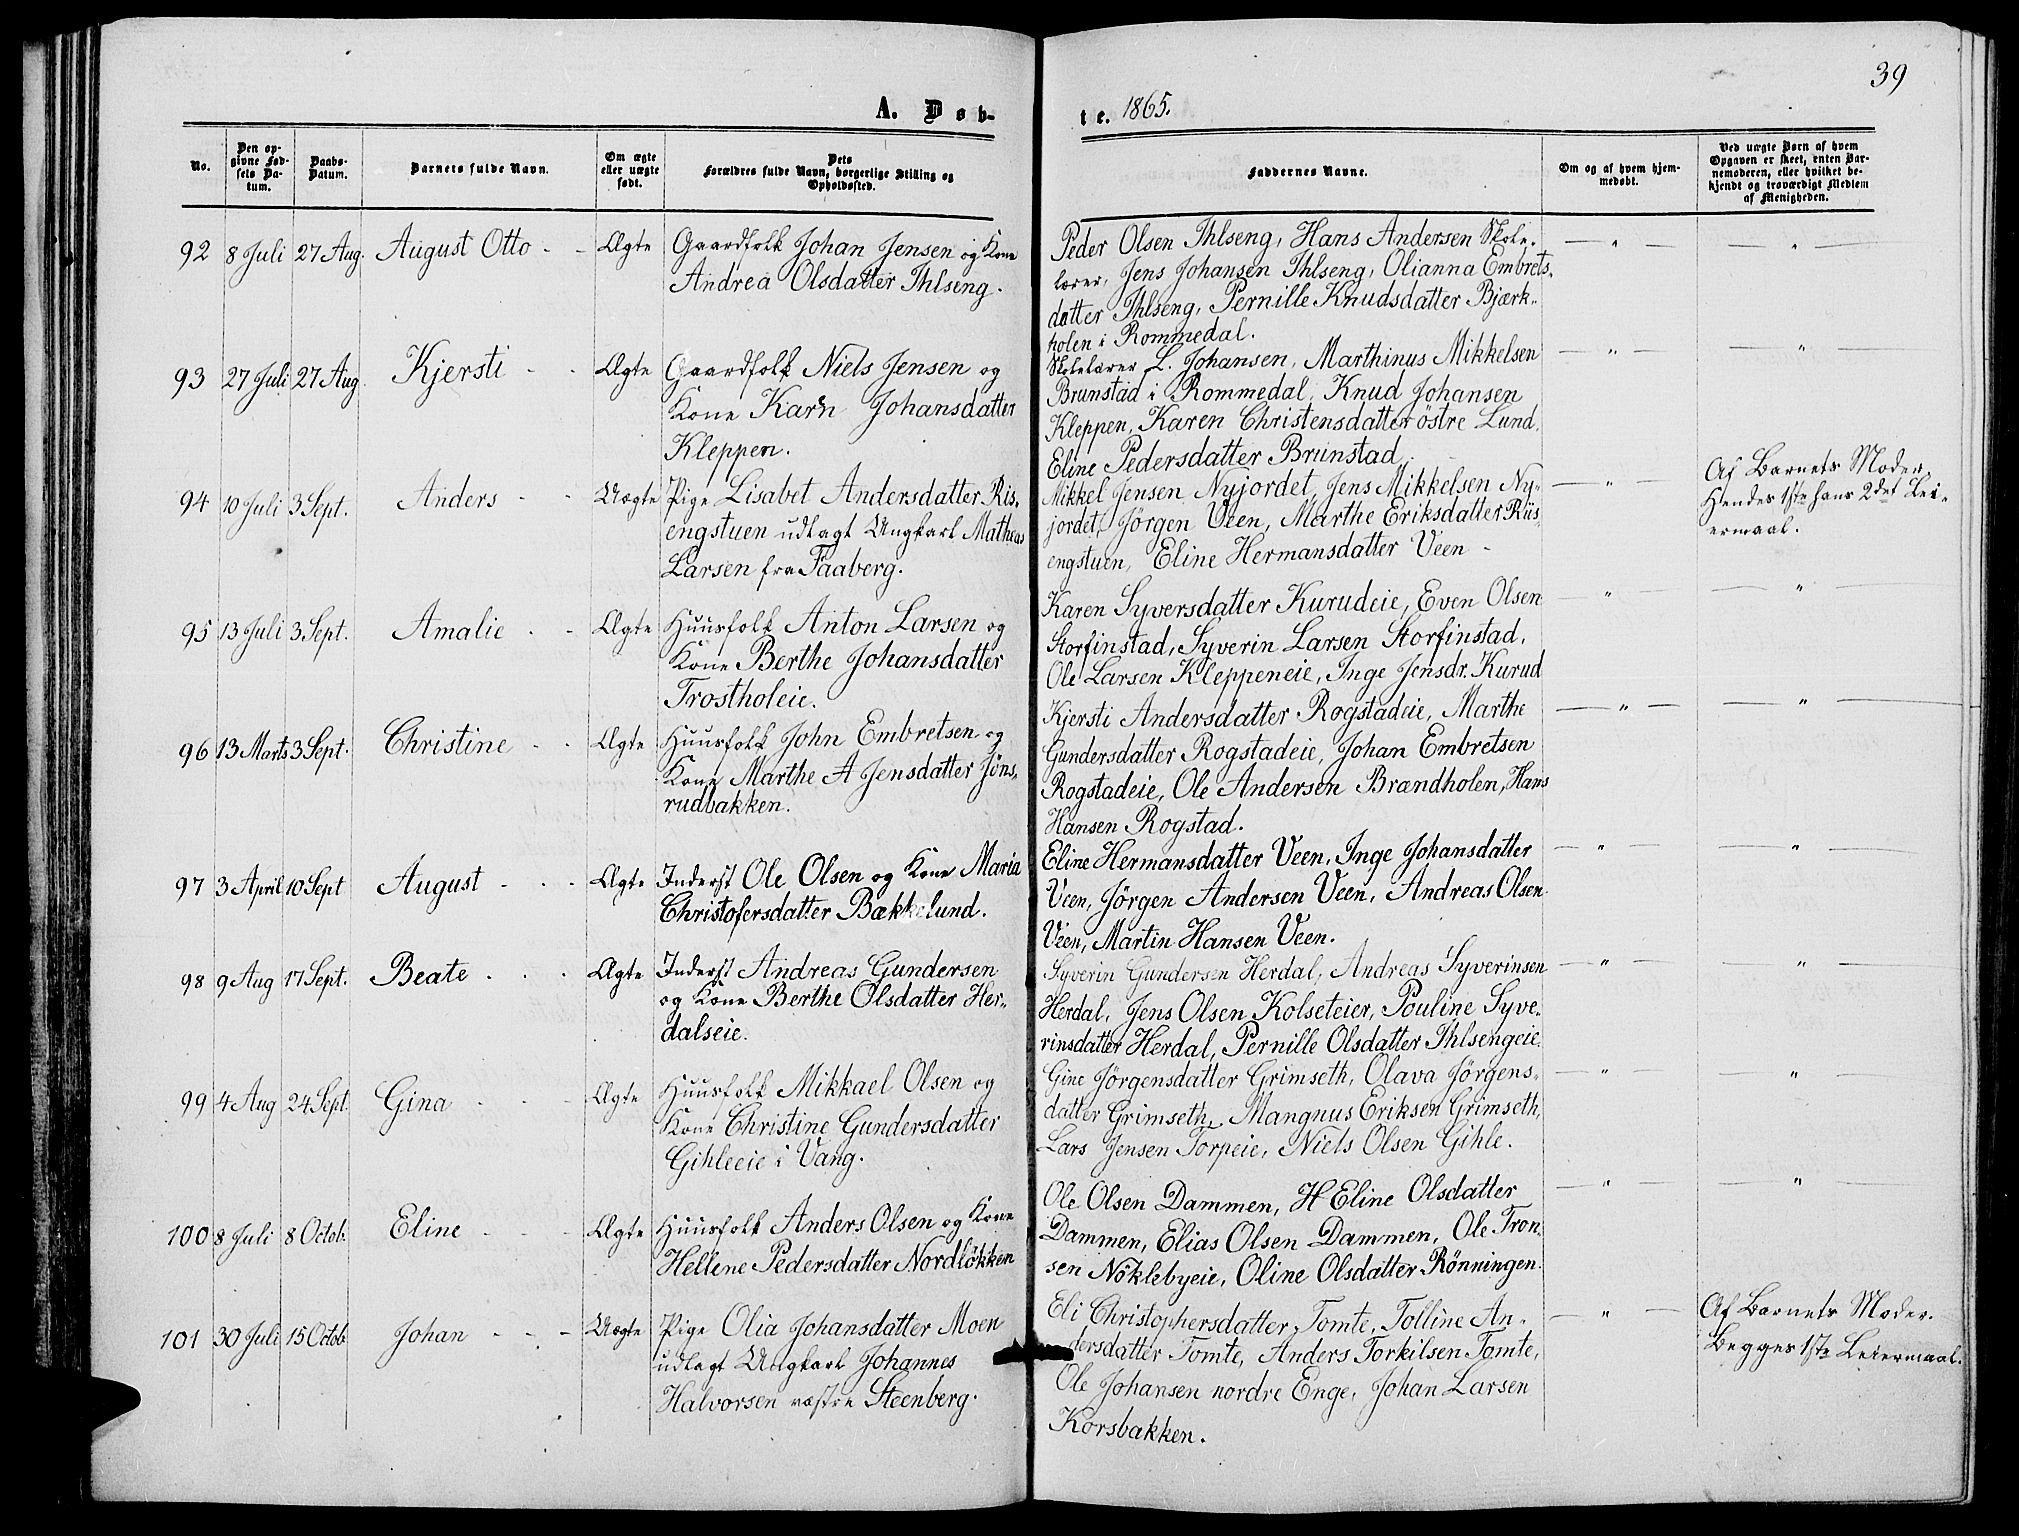 39
A. Døb-
te. 1865.
No.
Den op-
givne Fød-
sels Da-
tum.
Daabs-
Datum.
Barnets fulde Navn.
Om ægte
eller uægte
født.
Dets
Forældres fulde Navn, borgerlige Stilling og
Opholdssted.
Faddernes Navne.
Om og af hvem hjem-
medøbt.
Ved uægte Børn af hvem
Opgaven er skeet, enten Bar-
nemoderen, eller hvilket be-
kjendt og troværdigt Medlem
af Menigheden.
92 8 Juli 27 Aug. August Otto - - Ægte Gaardfolk Johan Jensen og Kone
Andrea Olsdatter Ihlseng.
Peder Olsen Ihlseng, Hans Andersen Skole-
lærer, Jens Johansen Ihlseng, Olianna Embrets-
datter Ihlseng, Pernille Knudsdatter Bjærk-
holen i Rommedal.
— " — — " —
93 27 Juli 27 Aug. Kjersti - - Ægte Gaardfolk Niels Jensen og
Kone Karn Johansdatter
Kleppen.
Skolelærer L. Johansen, Marthinus Mikkelsen
Brunstad i Rommedal, Knud Johansen
Kleppen, Karen Christensdatter östre Lund,
Eline Pedersdatter Brunstad
— " — — " —
94 10 Juli 3 Sept. Anders - - Uægte Pige Lisabet Andersdatter Ris-
engstuen udlagt Ungkarl Matheas
Larsen fra Faaberg.
Mikkel Jensen Nyjordet, Jens Mikkelsen Ny-
jordet, Jörgen Veen, Marthe Eriksdatter Riis-
engstuen, Eline Hermansdatter Veen -
— " —
Af Barnets Moder.
Hendes 1ste hans 2det Lei-
ermaal.
95 13 Juli 3 Sept. Amalie - - Ægte Huusfolk Anton Larsen og
Kone Berthe Johansdatter
Trostholeie.
Karen Syversdatter Kurudeie, Even Olsen
Storfinstad, Syverin Larsen Storfinstad,
Ole Larsen Kleppeneie, Inge Jensdr. Kurud
— " — — " —
96 13 Marts 3 Sept. Christine - - Ægte Huusfolk John Embretsen og
Kone Marthe A Jensdatter Jöns-
rudbakken.
Kjersti Andersdatter Rogstadeie, Marthe
Gundersdatter Rogstadeie, Johan Embretsen
Rogstadeie, Ole Andersen Brændholen, Hans
Hansen Rogstad.
— " — — " —
97 3 April 10 Sept August - - - Ægte Inderst Ole Olsen og Kone Maria
Christofersdatter Bækkelund.
Eline Hermansdatter Veen, Inge Johansdatter
Veen, Jörgen Andersen Veen, Andreas Olsen
Veen, Martin Hansen Veen.
— " — — " —
98 9 Aug 17 Sept. Beate - - - Ægte Inderst Andreas Gundersen
og Kone Berthe Olsdatter Her-
dalseie.
Syverin Gundersen Herdal, Andreas Syverinsen
Herdal, Jens Olsen Kolseteier, Pouline Syve-
rinsdatter Herdal, Pernille Olsdatter Ihlsengeie.
— " — — " —
99 4 Aug 24 Sept. Gina - - - Ægte Huusfolk Mikkael Olsen og
Kone Christine Gundersdatter
Gihleeie i Vang.
Gine Jörgensdatter Grimseth, Olava Jörgens-
datter Grimseth, Mangnus Eriksen Grimseth,
Lars Jensen Torpeie, Niels Olsen Gihle.
— " — — " —
100 8 Juli 8 Octob. Eline - - - Ægte Huusfolk Anders Olsen og Kone
Hellene Pedersdatter Nordlökken
Ole Olsen Dammen, H Eline Olsdatter
Dammen, Elias Olsen Dammen, Ole Tron-
sen Nöklebyeie, Oline Olsdatter Rönningen.
— " — — " —
101 30 Juli 15 Octob Johan - - - Uægte Pige Olia Johansdatter Moen
udlagt Ungkarl Johannes
Halvorsen vestre Steenberg.
Eli Christophersdatter Tomte, Tolline An-
dersdatter Tomte, Anders Torkilsen Tomte,
Ole Johansen nordre Enge, Johan Larsen
Korsbakken.
— " —
Af Barnets Moder.
Begges 1ste Leiermaal.